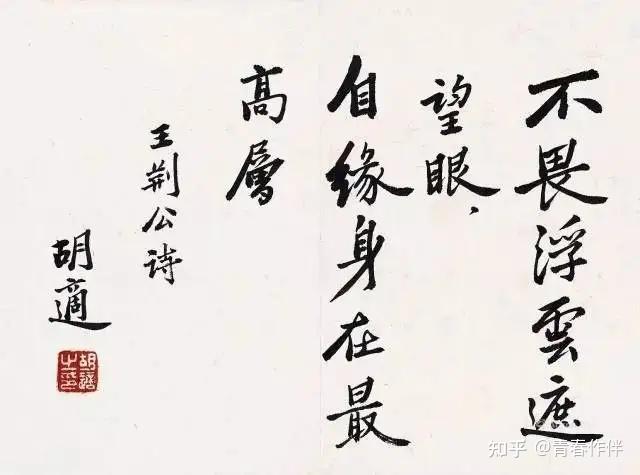 不畏浮雲遮
望眼，
自缘身在最
高層
王荆公诗
胡適
胡適之印
知乎 @青春作伴